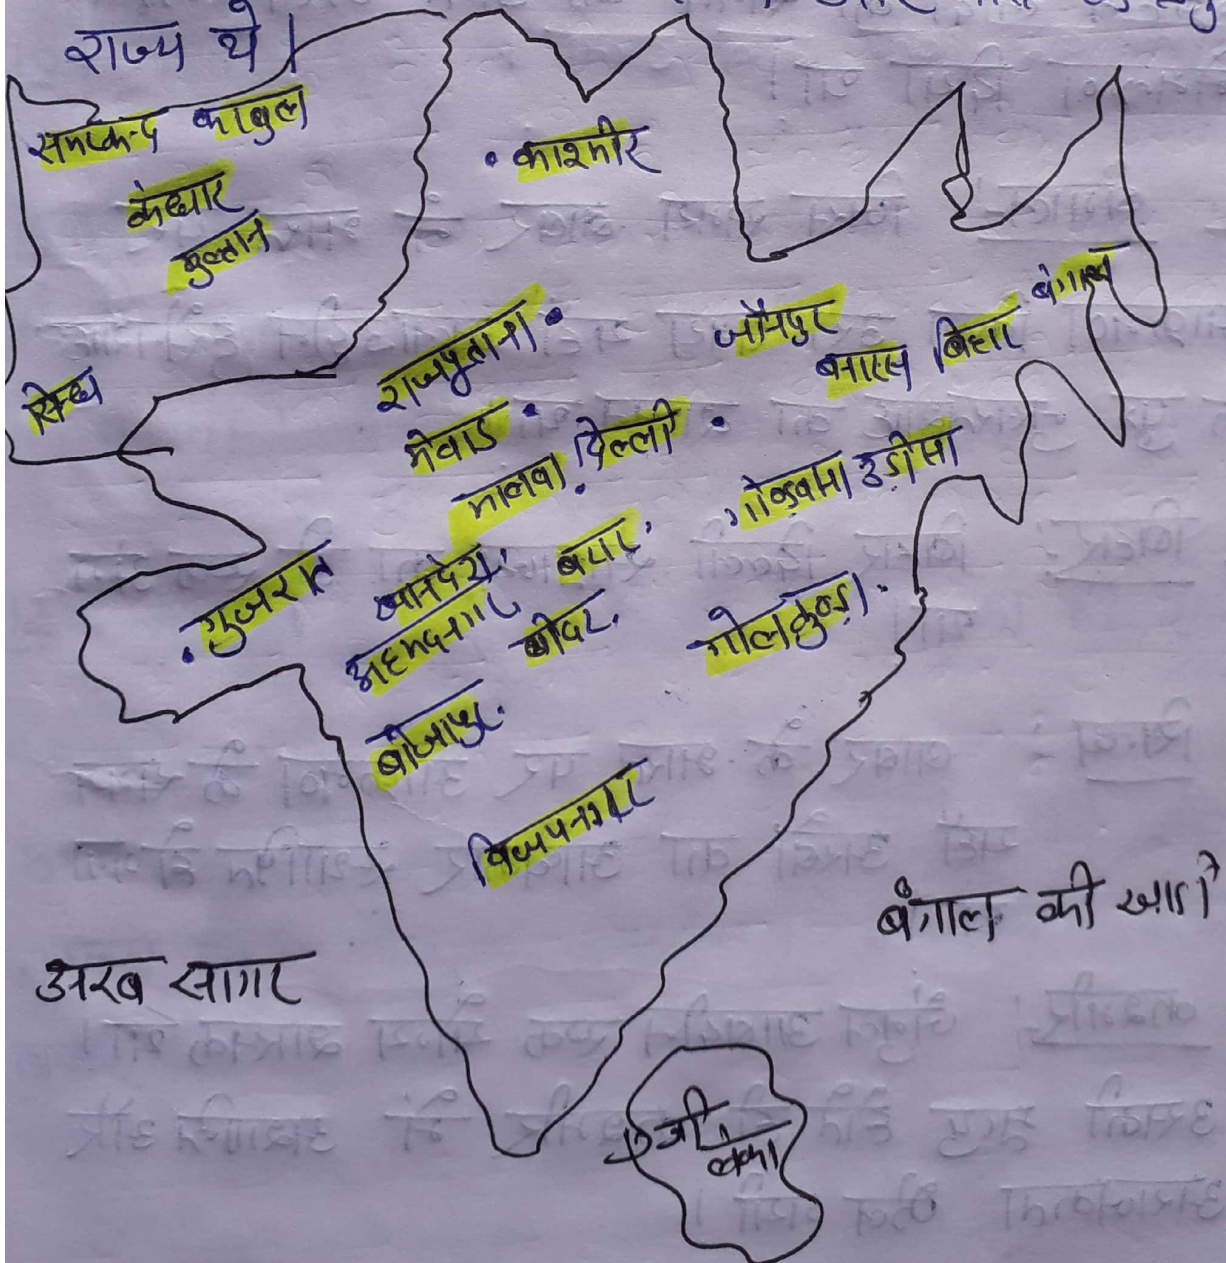 राज्य थे।
समरकन्द काबुल
कंधार
मुल्तान
काश्मीर
सिन्ध
राजपूताना
मेवाड
मालवा
दिल्ली
जौनपुर
बनारस बिहार बंगाल
गोंडवाना उड़ीसा
गुजरात
खानदेश
बरार
अहमदनगर
बीदर
गोलकुण्डा
बीजापुर
विजयनगर
बंगाल की खाड़ी
अरब सागर
श्री लंका